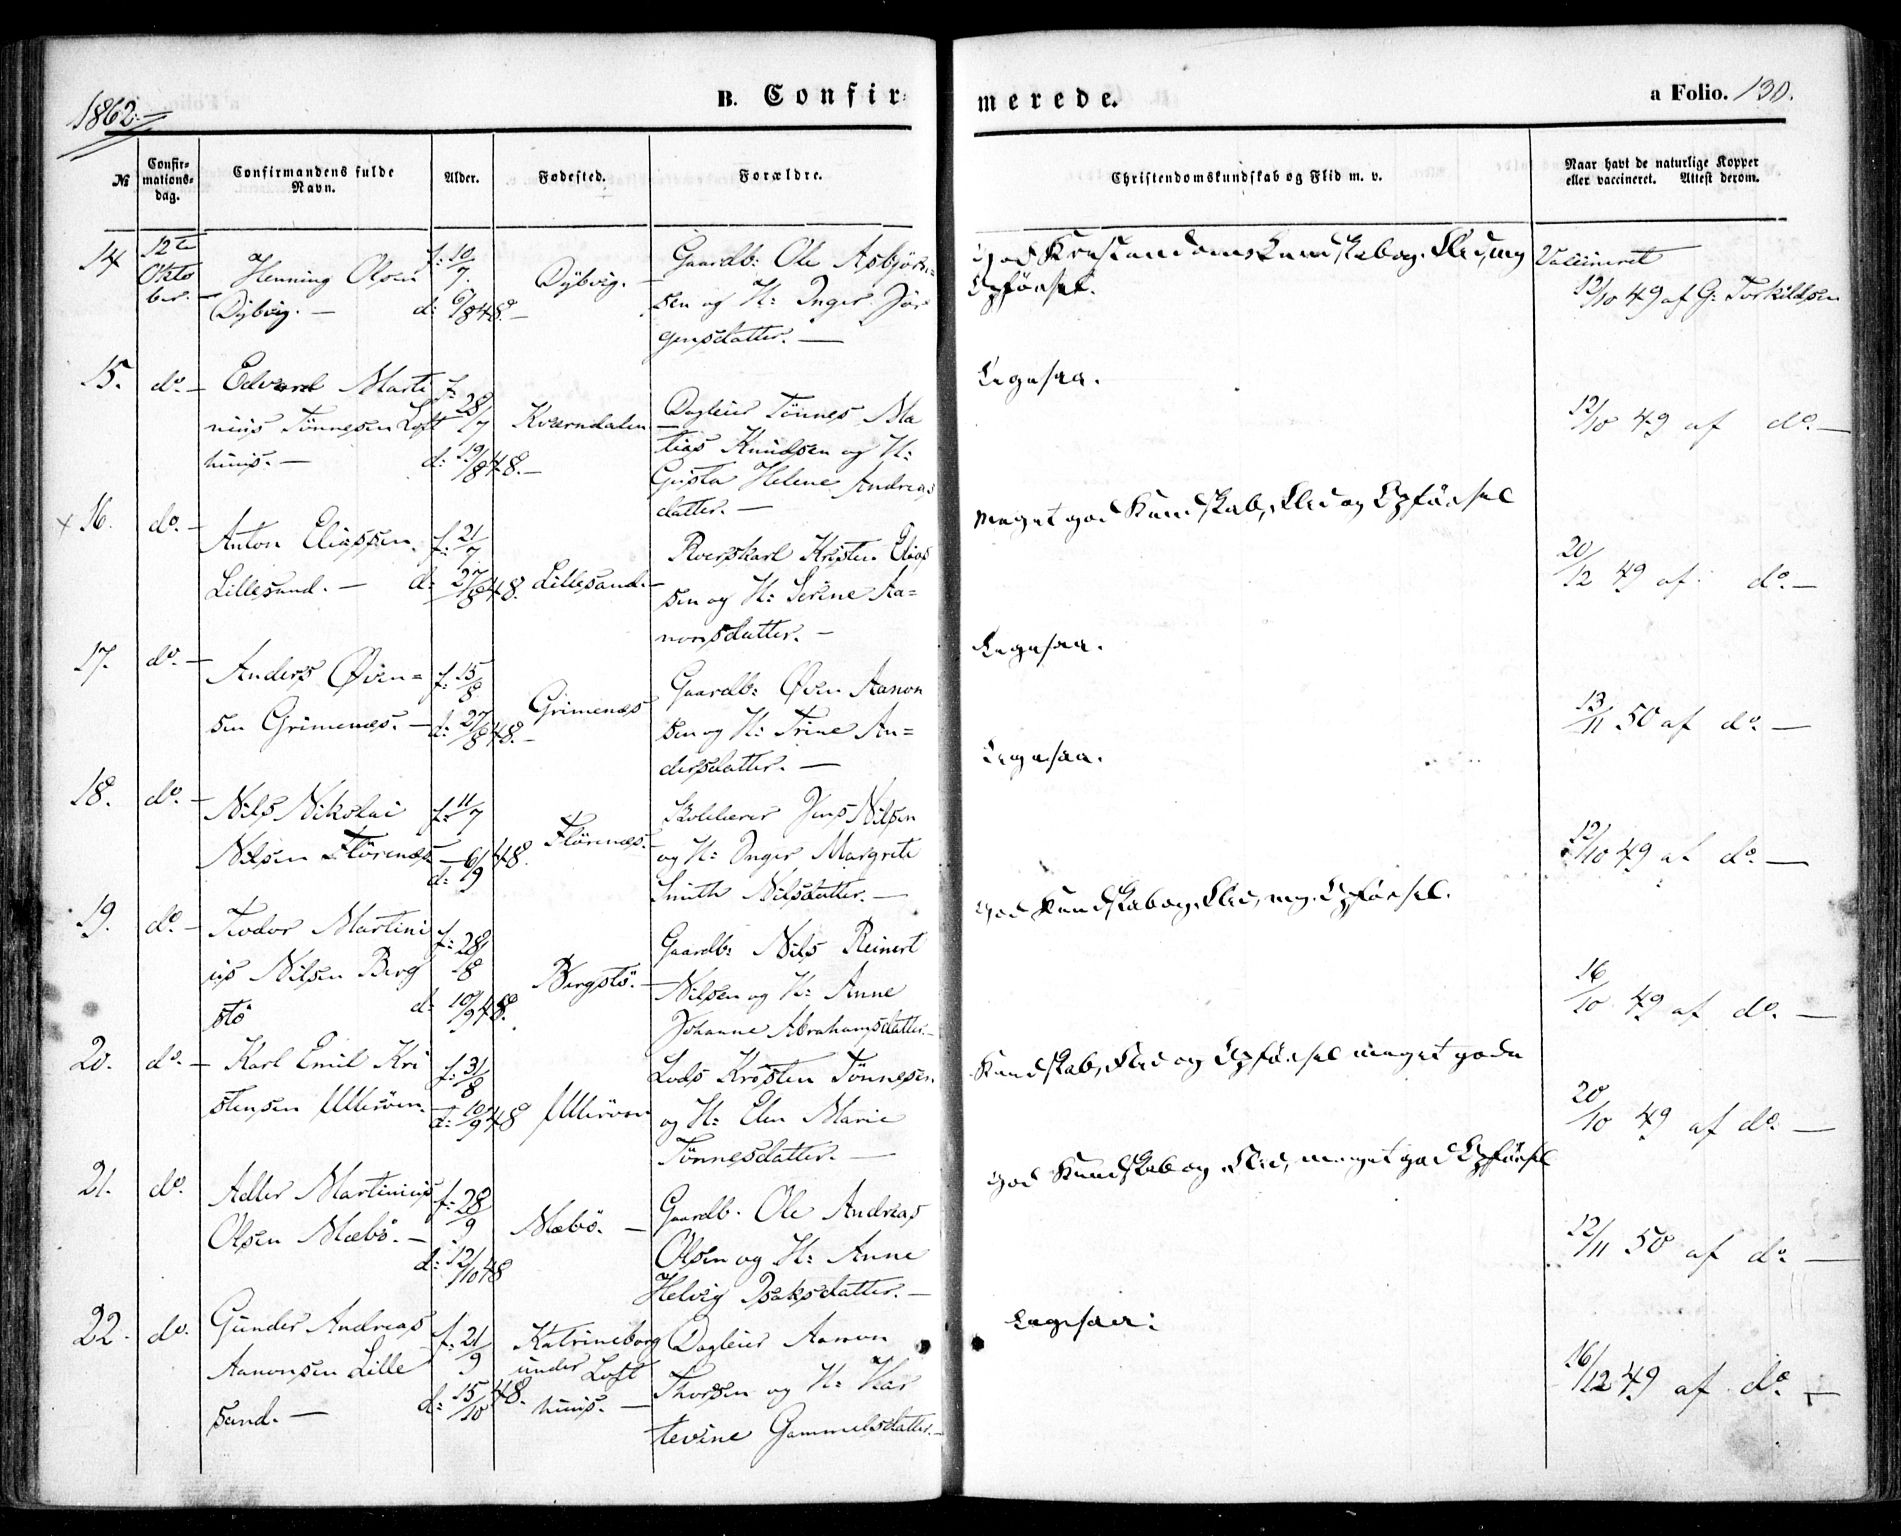 1862.
B. Confir-
merede.
a Folio. 130.
№
Confir-
mations-
dag.
Confirmandens fulde
Navn.
Alder.
Fødested.
Forældre.
Christendomskundskab og Flid m. v.
Naar havt de naturlige Kopper
eller vaccineret. Attest derom.
14
12te
Okto
ber.
Henning Olsen
Dybvig. —
f: 10/7.
d: 6/8 48. —
Dybvig. —
Gaardb: Ole Asbjörn-
sen og H: Inger Jör
gensdatter. —
God Kristendomskundskab og Flid, mg
Opförsel.
Vaccineret
12/10 49 af G: Torkildsen
15.
do. —
Edvard Marti
nius Tönnesen Loft
huus. —
f: 28/7
d: 19/8 48. —
Kværndalen
Dagleier Tönnes Ma
tias Knudsen og H:
Gusta Helene Andreas
datter. —
Ligesaa.
12/10 49 af do. —
x 16.
do. —
Anton Eliassen
Lillesand. —
f: 21/7
d: 27/8 48.
Lillesand. —
Roerskarl Kristen Elias
sen og H: Serine Aa=
nonsdatter. —
Meget god Kundskab, Flid og Opförsel
20/12 49 af do. —
17.
do. —
Anders Øven=
sen Grimenes. —
f: 15/8
d: 27/8 48. —
Grimenæs
Gaardb: Øven Aanon
sen og H: Trine An=
dersdatter. —
Ligesaa.
13/11 50 af do. —
18.
do. —
Nils Nikolai
Nilsen Flörenæs —
f: 11/7
d: 6/9 48.
Flörenæs. —
Skolelærer Jens Nilsen
og H: Inger Margrete
Smith Nilsdatter. —
Ligesaa.
12/10 49 af do. —
19.
do. —
Teodor Martini
us Nilsen Berg
stö
f: 28/8
d: 10/9 48.
Bergstö. —
Gaardb: Nils Reinert
Nilsen og H: Anne
Johanne Abrahamsdatter. —
God Kundskab og Flid, mg. Opförsel.
16/10 49 af do. —
20.
do. —
Karl Emil Kri
stensen Ulleröen. —
f: 31/8
d: 10/9 48
Ulleröen
Lods Kristen Tönnesen
og H: Elen Marie
Tönnesdatter. —
Kundskab, Flid og Opförsel meget gode
20/10 49 af do. —
21.
do.
Adler Martinius
Olsen Mæbö. —
f: 28/9
d: 12/10 48
Mæbö. —
Gaardb. Ole Andreas
Olsen og H: Anne
Helvig Isaksdatter. —
God Kundskab og Flid, meget god Opförsel
12/11 50 af do. —
22.
do.
Gunder Andreas
Aanonsen Lille
sand. —
f: 21/9
d: 15/10 48.
Katrineborg
under Loft
huus. —
Dagleier Aanon
Thorsen og H: Kar
tevine Gammelsdatter. —
Ligesaa:
16/12 49 af do. —